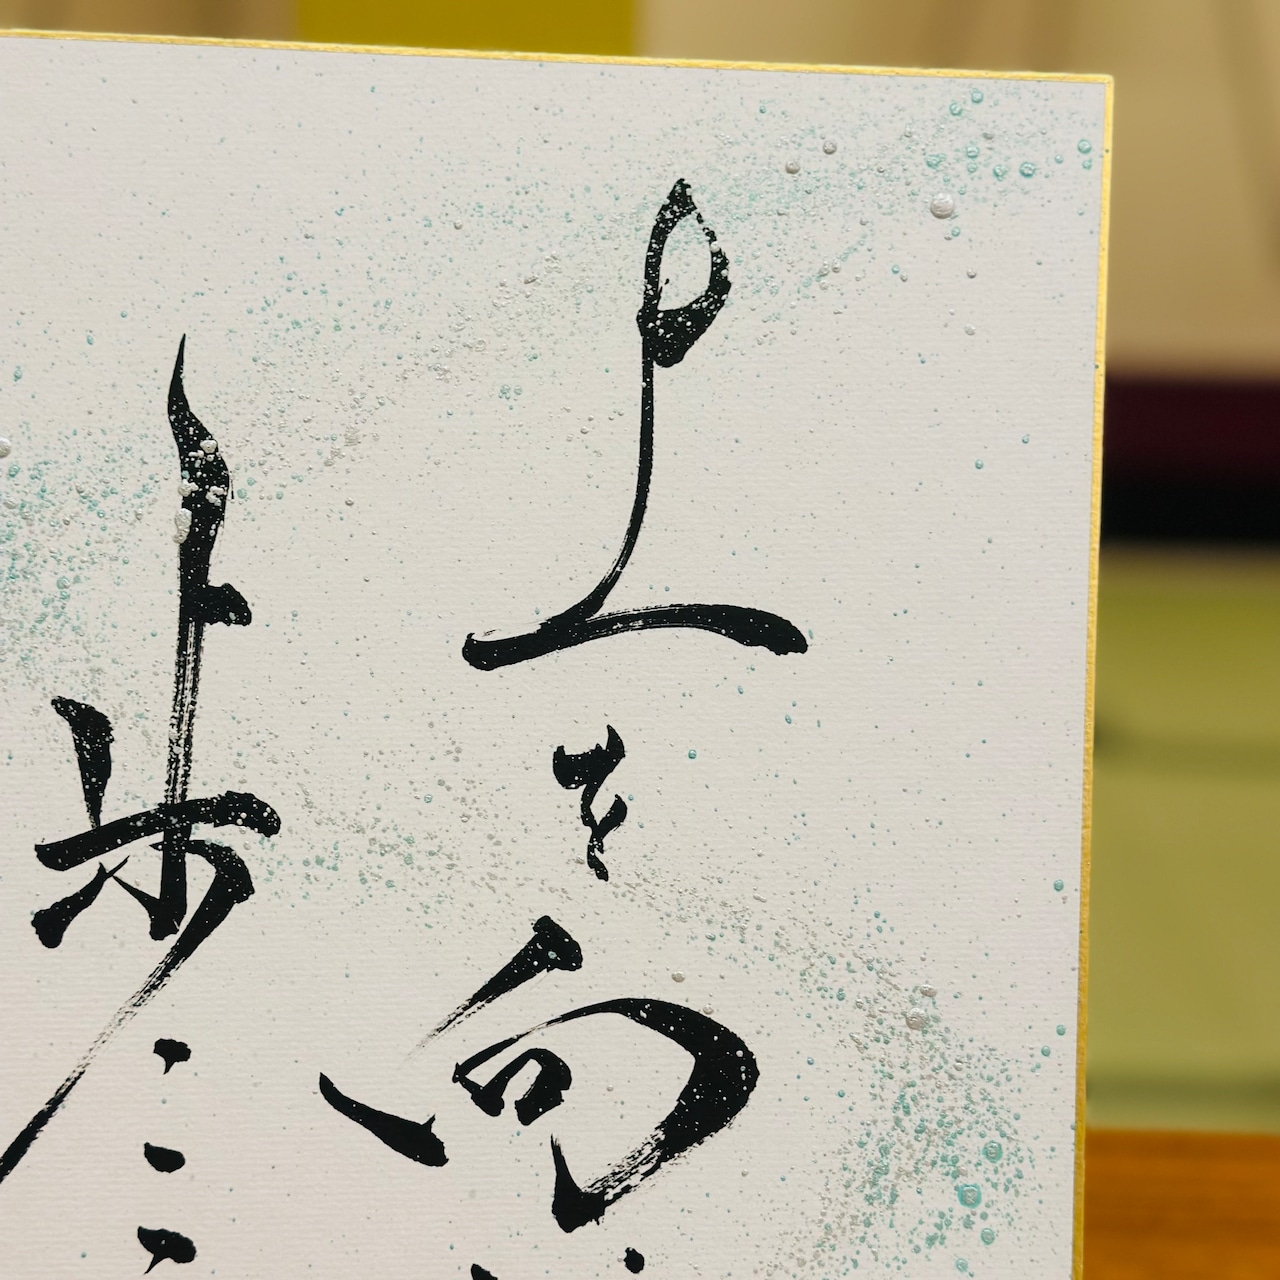 上を向
歩